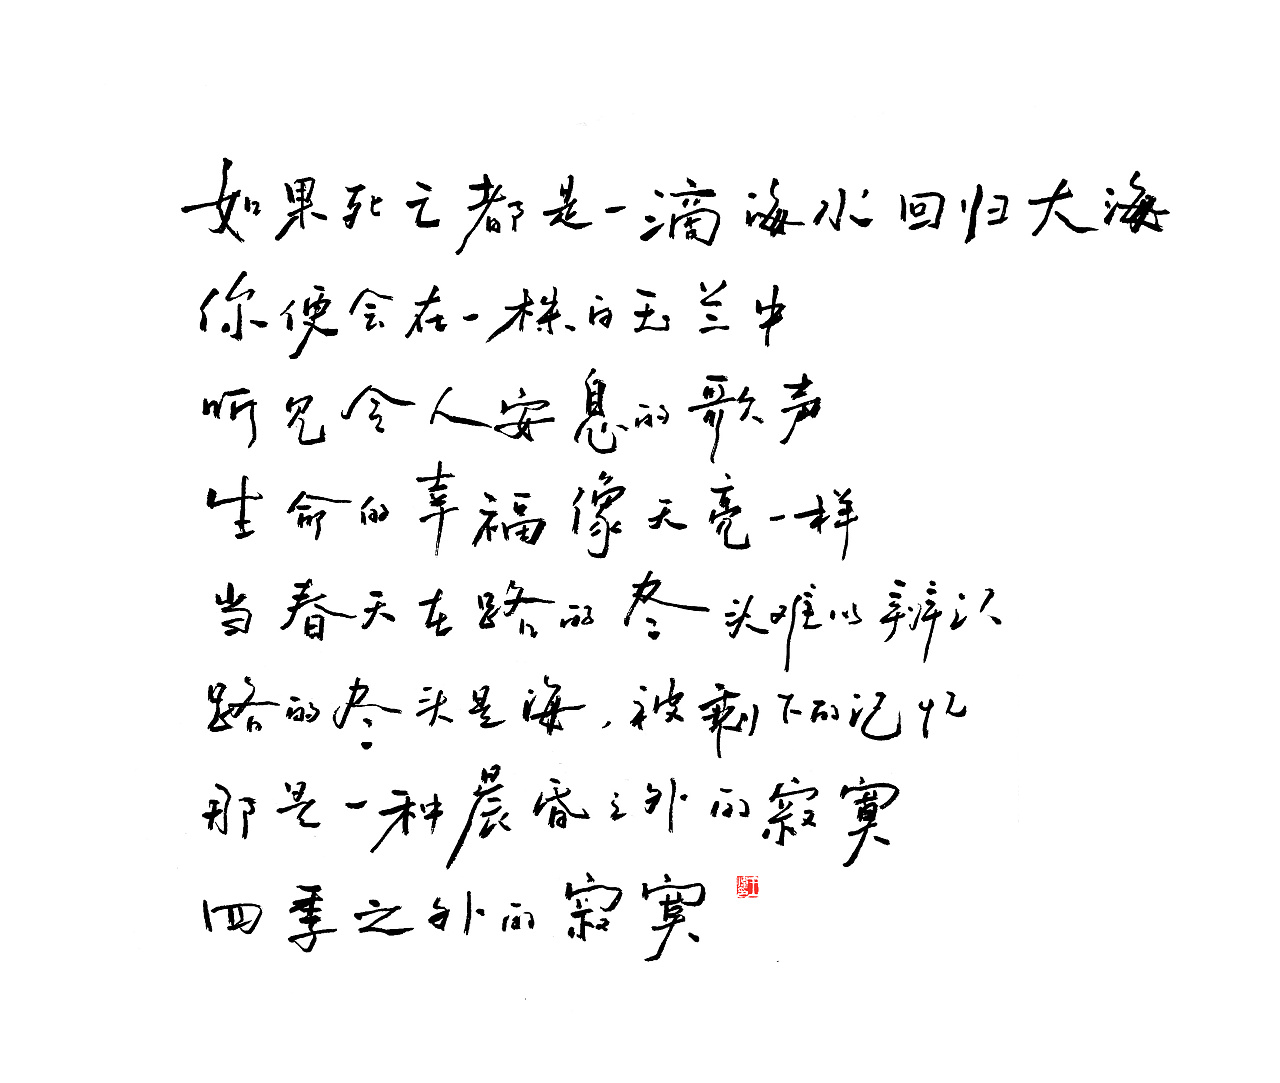 如果死亡都是一滴海水回归大海
你便会在一株白玉兰中
听见令人安息的歌声
生命的幸福像天亮一样
当春天在路的尽头难以辨识
路的尽头是海，被剩下的记忆
那是一种晨昏之外的寂寞
四季之外的寂寞